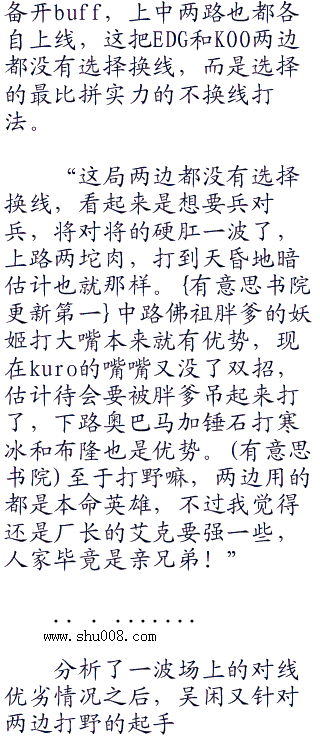 备开buff，上中两路也都各
自上线，这把EDG和KOO两边
都没有选择换线，而是选择
的最比拼实力的不换线打
法。
“这局两边都没有选择
换线，看起来是想要兵对
兵，将对将的硬肛一波了，
上路两坨肉，打到天昏地暗
估计也就那样。{有意思书院
更新第一}中路佛祖胖爹的妖
姬打大嘴本来就有优势，现
在kuro的嘴嘴又没了双招，
估计待会要被胖爹吊起来打
了，下路奥巴马加锤石打寒
冰和布隆也是优势。(有意思
书院)至于打野嘛，两边用的
都是本命英雄，不过我觉得
还是厂长的艾克要强一些，
人家毕竟是亲兄弟！”
.. . .......
www.shu008.com
分析了一波场上的对线
优劣情况之后，吴闲又针对
两边打野的起手